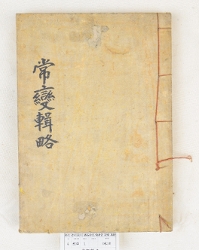 常變輯略